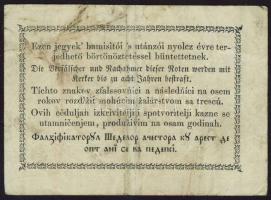 Ezen jegyek' hamisitói 's utánzói nyolcz évre ter-
jedhető börtönöztetéssel büntettetnek.
Die Verfälscher und Nachahmer dieser Noten werden mit
Kerker bis zu acht Jahren bestraft.
Tichto znakov zfalssovňíci a násladňíci na osem
rokov rozdižit mohúcím žalárstvom sa trescú.
Ovih cèduljah izkrivitèlji i spotvoritelji kazne se
utamničenjem, produživim na osam godinah.
Фалзіфікаторул
ачестора кꙋ арест де
опт ані се ва педепсі.